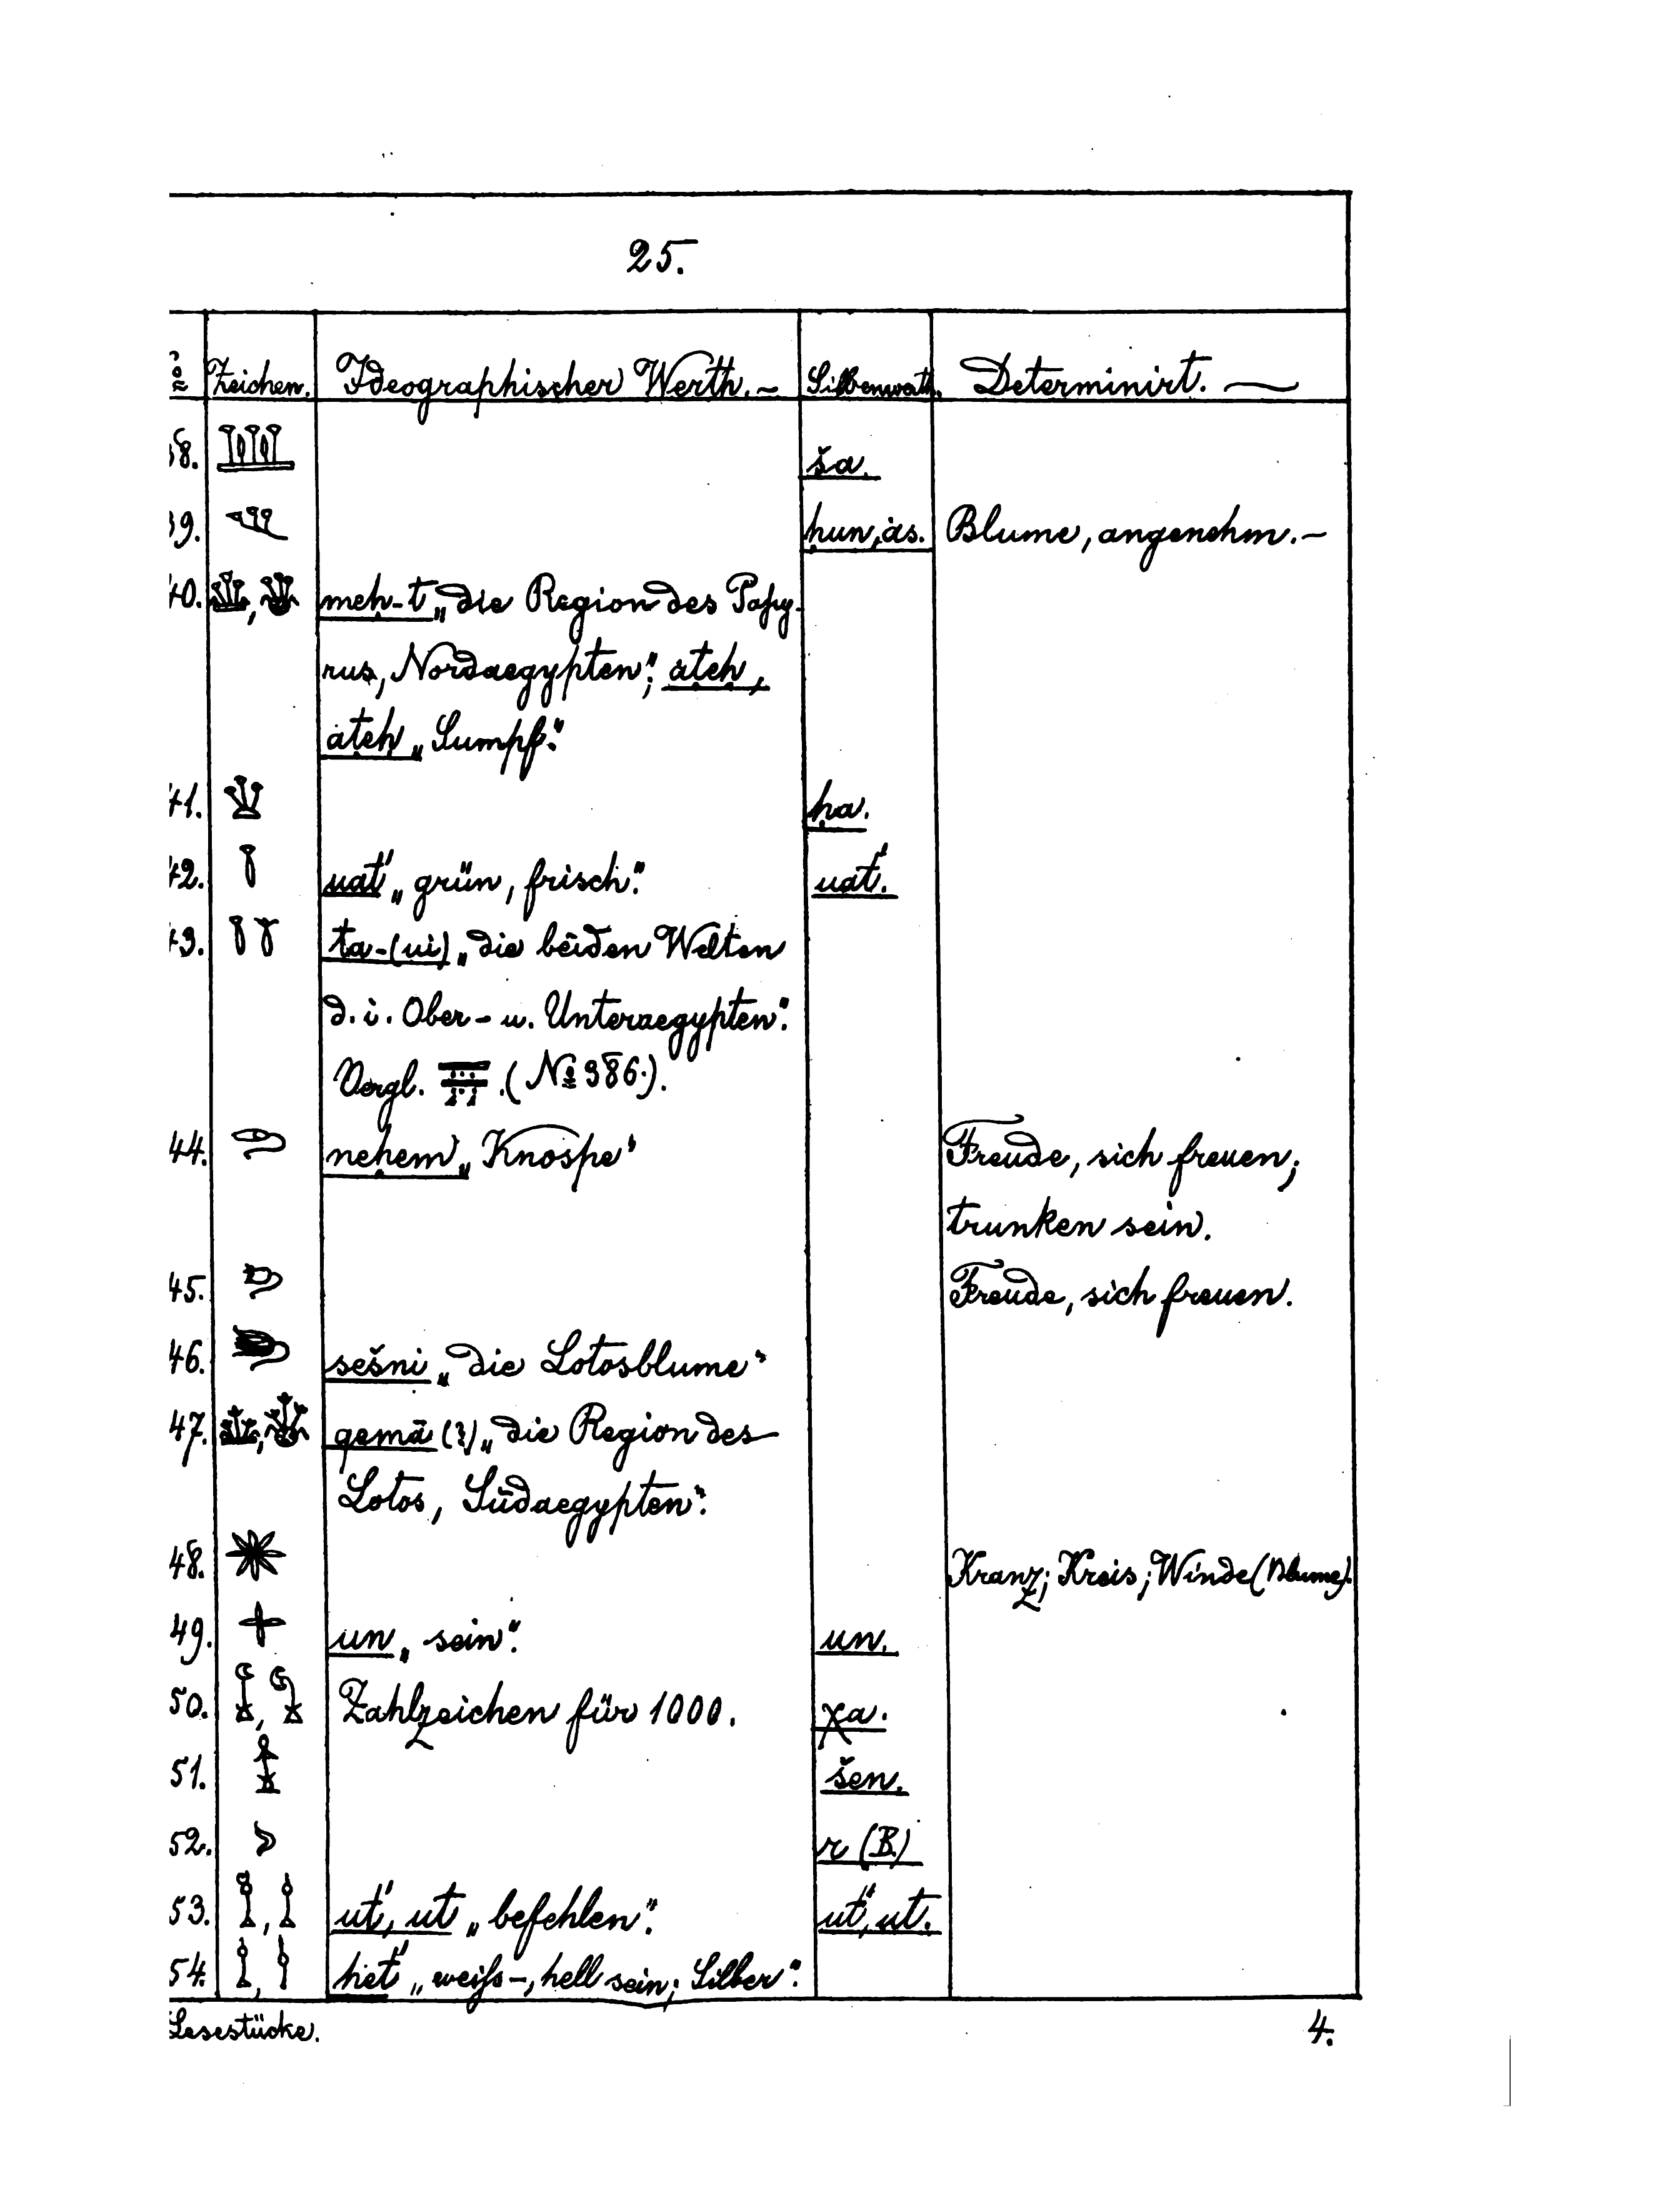 25.
Zeichen. Ideographischer Werth. – Silbenwerth. Determinirt. —
38. ša.
39. ḥun, ȧs. Blume, angenehm. –
40. meḥ-t „die Region des Papy-
rus, Nordaegypten“; ȧteḥ,
ȧteḥ „Sumpf“.
41. ḥa.
42. uat' „grün, frisch“. uat'.
43. ta-(ui) „die beiden Welten
d. i. Ober- u. Unteraegypten“.
Vergl. (No 386.).
44. neḥem „Knospe“ Freude, sich freuen;
trunken sein.
45. Freude, sich freuen.
46. sešni „die Lotosblume“
47. qemā (?) „die Region des
Lotos, Südaegypten“.
48. Kranz; Kreis; Winde (Blume).
49. un „sein“. un.
50. Zahlzeichen für 1000. χa.
51. šen.
52. r (B.)
53. ut', ut „befehlen“. ut', ut.
54. ḥet' „weiſs-, hell sein; Silber“.
Lesestücke. 4.